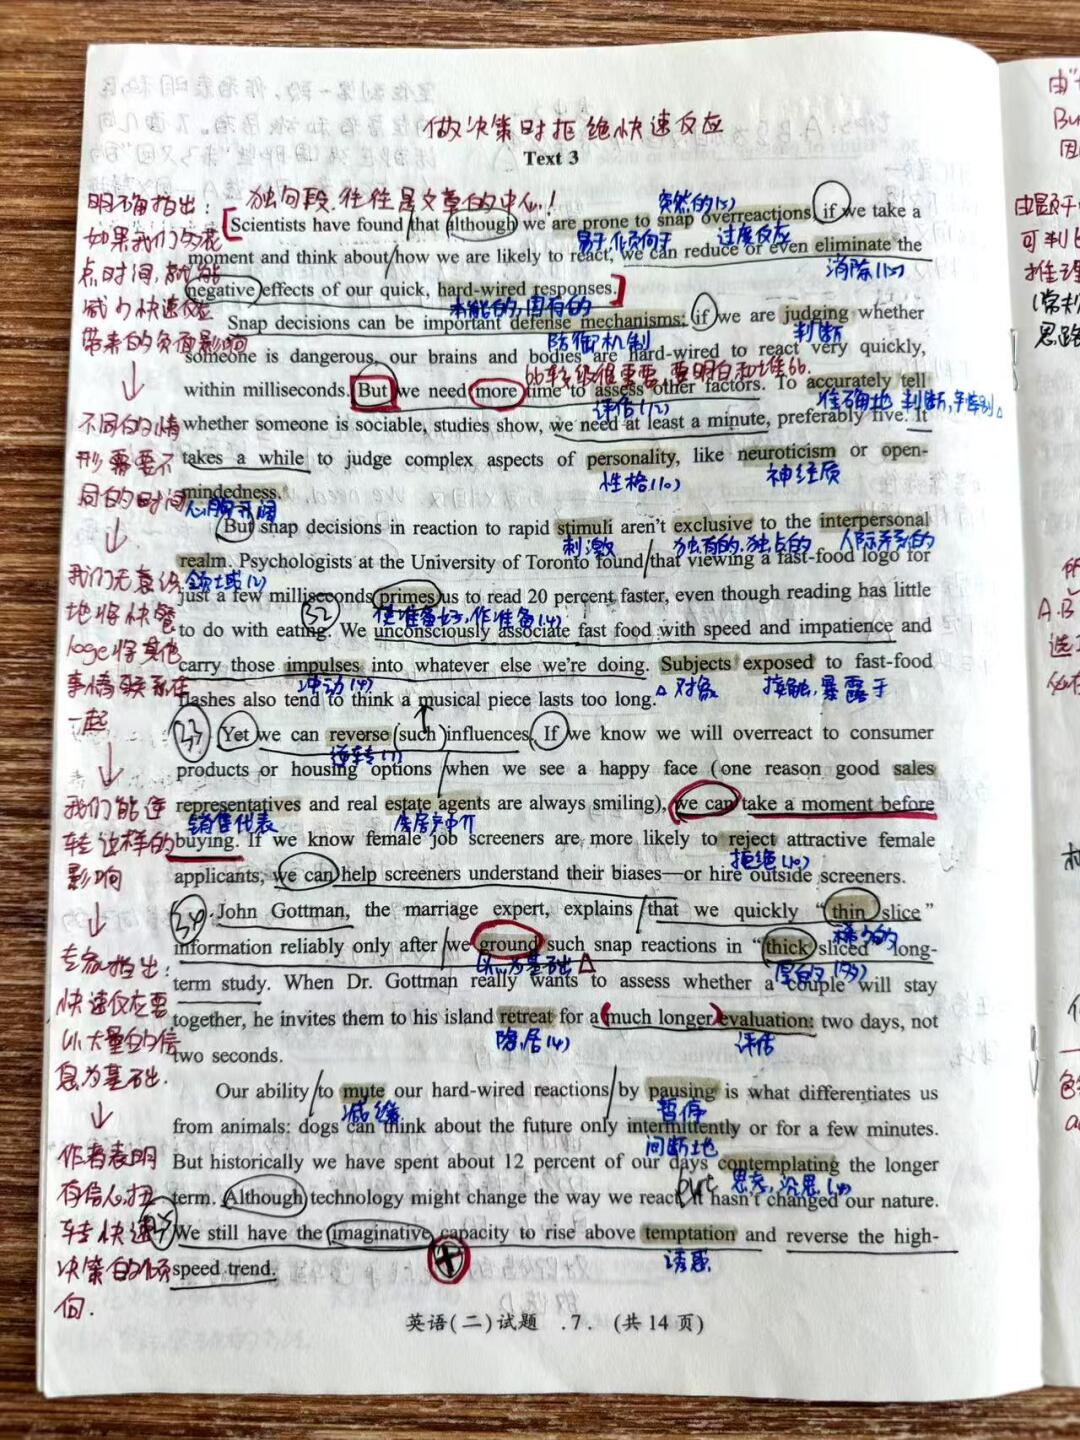 做决策时拒绝快速反应
Text 3
独句段往往是文章的中心!
明确指出:
如果我们多花
点时间,就能
减少快速反应
带来的负面影响
↓
不同的情
形需要不
同的时间
↓
我们无意识
地将快餐
loge将其他
事情联系在
一起
↓
我们能逆
转这样的
影响
↓
专家指出:
快速反应要
以大量的信
息为基础.
↓
作者表明
有信心扭
转快速
决策的倾
向.
突然的(5)
Scientists have found that although we are prone to snap overreactions, if we take a
易于,倾向于 过度反应
moment and think about how we are likely to react, we can reduce or even eliminate the
消除(12)
negative effects of our quick, hard-wired responses.
本能的,固有的
Snap decisions can be important defense mechanisms; if we are judging whether
防御机制 判断
someone is dangerous, our brains and bodies are hard-wired to react very quickly,
bb较级很重要,要明白和谁bb.
within milliseconds. But we need more time to assess other factors. To accurately tell
评估(12) 准确地 判断,辨别
whether someone is sociable, studies show, we need at least a minute, preferably five. It
takes a while to judge complex aspects of personality, like neuroticism or open-
性格(10) 神经质
mindedness.
心胸开阔
But snap decisions in reaction to rapid stimuli aren't exclusive to the interpersonal
刺激 独有的,独占的 人际关系的
realm. Psychologists at the University of Toronto found that viewing a fast-food logo for
领域(2)
just a few milliseconds primes us to read 20 percent faster, even though reading has little
32 使准备好,作准备(4)
to do with eating. We unconsciously associate fast food with speed and impatience and
carry those impulses into whatever else we're doing. Subjects exposed to fast-food
冲动(4) 对象 接触,暴露于
flashes also tend to think a musical piece lasts too long.
33 Yet we can reverse such influences. If we know we will overreact to consumer
逆转(7)
products or housing options when we see a happy face (one reason good sales
representatives and real estate agents are always smiling), we can take a moment before
销售代表 房屋中介
buying. If we know female job screeners are more likely to reject attractive female
拒绝(10)
applicants, we can help screeners understand their biases—or hire outside screeners.
34 John Gottman, the marriage expert, explains that we quickly "thin slice"
稀少的
information reliably only after we ground such snap reactions in "thick sliced" long-
以…为基础
term study. When Dr. Gottman really wants to assess whether a couple will stay
together, he invites them to his island retreat for a much longer evaluation: two days, not
隐居(4) 评估
two seconds.
Our ability to mute our hard-wired reactions by pausing is what differentiates us
减缓 暂停
from animals: dogs can think about the future only intermittently or for a few minutes.
间断地
But historically we have spent about 12 percent of our days contemplating the longer
but 思考,沉思(4)
term. Although technology might change the way we react, it hasn't changed our nature.
35 We still have the imaginative capacity to rise above temptation and reverse the high-
+ 诱惑
speed trend.
英语(二)试题 .7. (共14页)